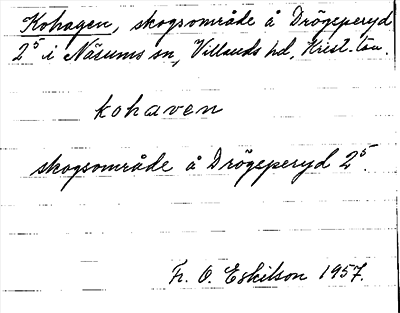 Kohagen, skogsområde å Drögeperyd
2⁵ i Näsums sn, Villands hd, Krist. län.
kohaven
skogsområde å Drögeperyd 2⁵.
Fr. O. Eskilson 1957.